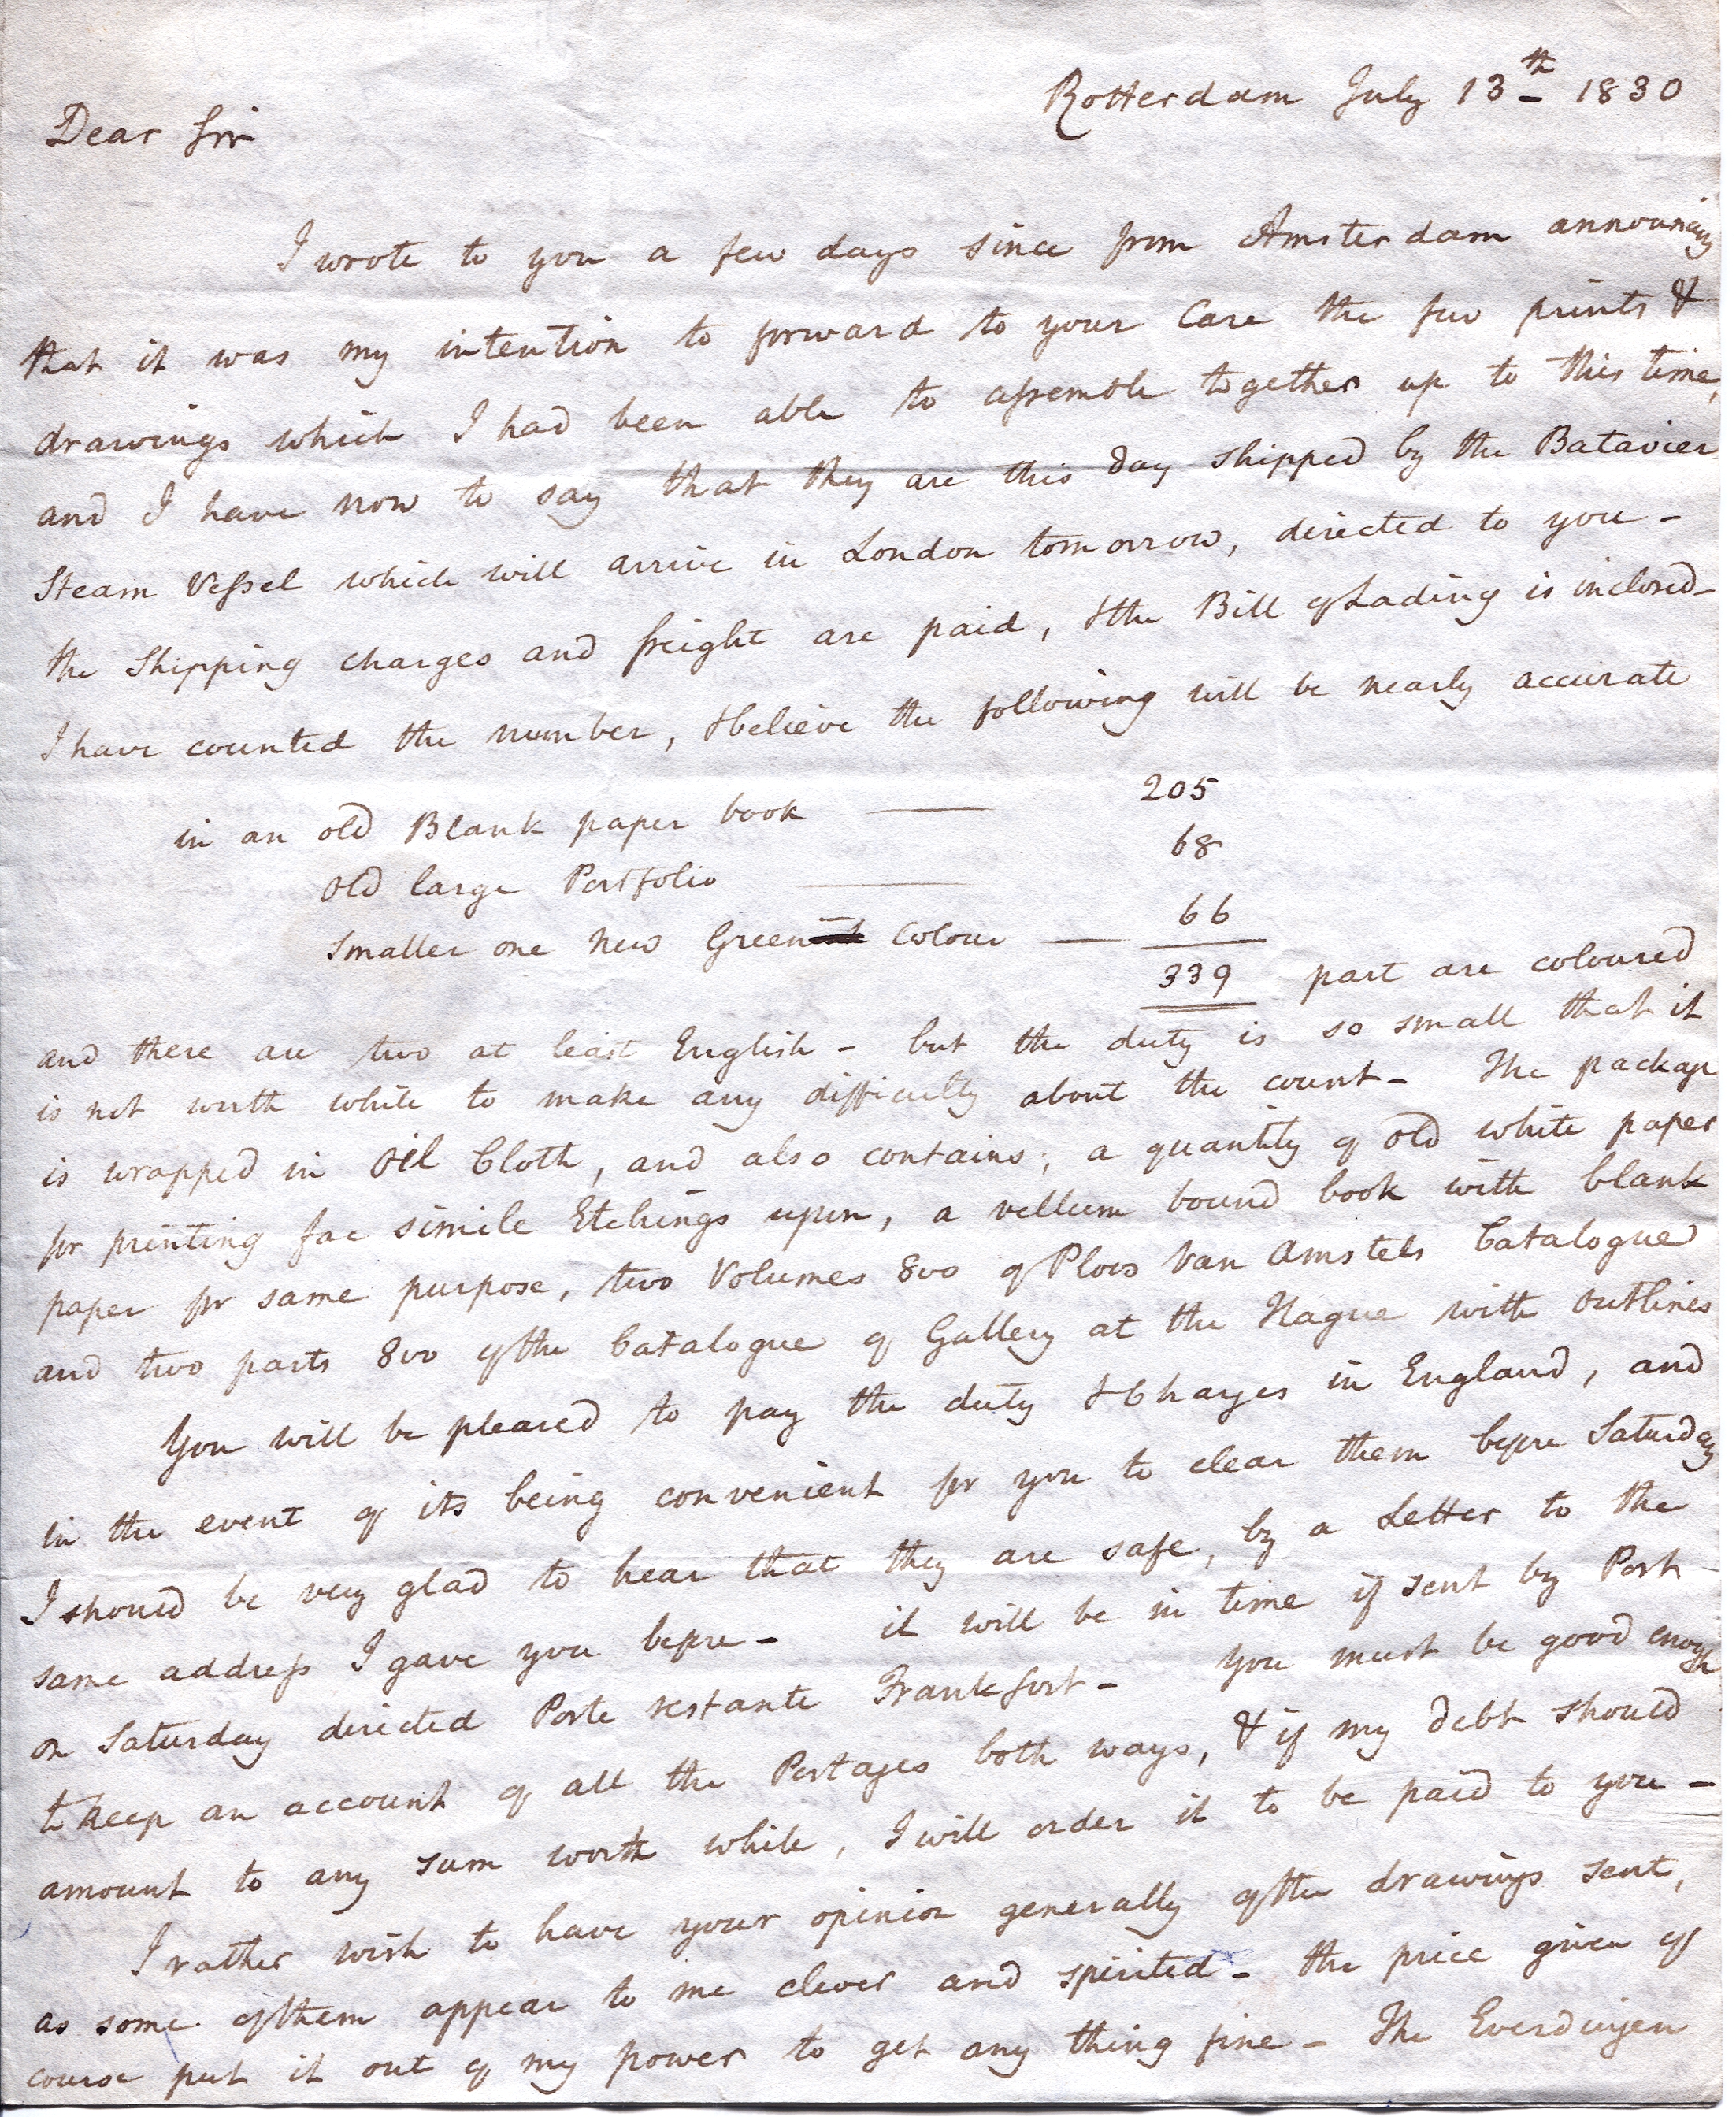 Rotterdam July 13th 1830
Dear Sir
I wrote to you a few days since from Amsterdam announcing
that it was my intention to forward to your Care the few prints &
drawings which I had been able to assemble together up to this time,
and I have now to say that they are this day shipped by the Batavier
Steam Vessel which will arrive in London tomorrow, directed to you -
the Shipping charges and freight are paid, & the Bill of Lading is inclosed -
I have counted the number, & believe the following will be nearly accurate
in an old Blank paper book —— 205
old large Portfolio —— 68
Smaller one New Green Colour —— 66
339 part are coloured
and there are two at least English - but the duty is so small that it
is not worth while to make any difficulty about the count - The package
is wrapped in Oil Cloth, and also contains, a quantity of old white paper
for printing fac simile Etchings upon, a vellum bound book with blank
paper for same purpose, two Volumes 8vo of Ploos Van Amstels Catalogue
and two parts 8vo of the Catalogue of Gallery at the Hague with outlines
You will be pleased to pay the duty & Charges in England, and
in the event of its being convenient for you to clear them before Saturday
I should be very glad to hear that they are safe, by a Letter to the
same address I gave you before - it will be in time if sent by Post
on Saturday directed Poste restante Frankfort - You must be good enough
to keep an account of all the Postages both ways, & if my debt should
amount to any sum worth while, I will order it to be paid to you -
I rather wish to have your opinion generally of the drawings sent,
as some of them appear to me clever and spirited - the price given of
course put it out of my power to get any thing fine - The Everdingen